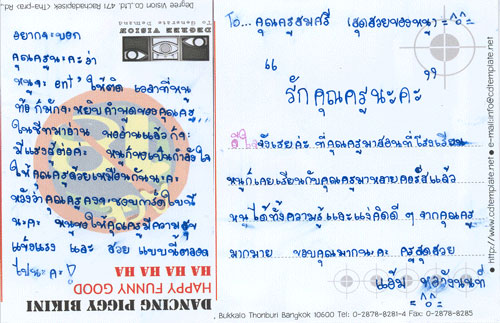 To... คุณครูสมศรี (สุดสวยของหนู) =^o^=
“
รักคุณครูนะคะ
”
ดีใจจังเลยค่ะ ที่คุณครูมาสอนที่โรงเรียน
หนูก็เคยเรียนกับคุณครูมาหลายคอร์สแล้ว
หนูได้ทั้งความรู้และแง่คิดดี ๆ จากคุณครู
มากมาย ขอบคุณมากนะคะ ครูสุดสวย
=^o^=
อยากจะบอก
คุณครูนะคะว่า
หนูจะ ent' ให้ติด เวลาที่หนู
ท้อ ก็มักจะหยิบคำพูดของคุณครู
ในชีทมาอ่าน พออ่านแล้วก็จะ
มีแรงสู้ต่อค่ะ หนูก็ขอเป็นกำลังใจ
ให้คุณครูด้วยเหมือนกันนะคะ
หวังว่าคุณครูคงจะชอบการ์ดใบนี้
นะคะ หนูขอให้คุณครูมีความสุข
แข็งแรง และ สวย แบบนี้ตลอด
ไปนะคะ!
DEGREE VISION
To Generate Demand
Degree Vision Co.,Ltd. 471 Rachadapisek (Tha-pra) Rd.
, Bukkalo Thonburi Bangkok 10600 Tel: 0-2878-8281-4 Fax: 0-2878-8285
http://www.cdtemplate.net • e-mail:info@cdtemplate.net
HA HA HA HA
HAPPY FUNNY GOOD
DANCING PIGGY BIKINI